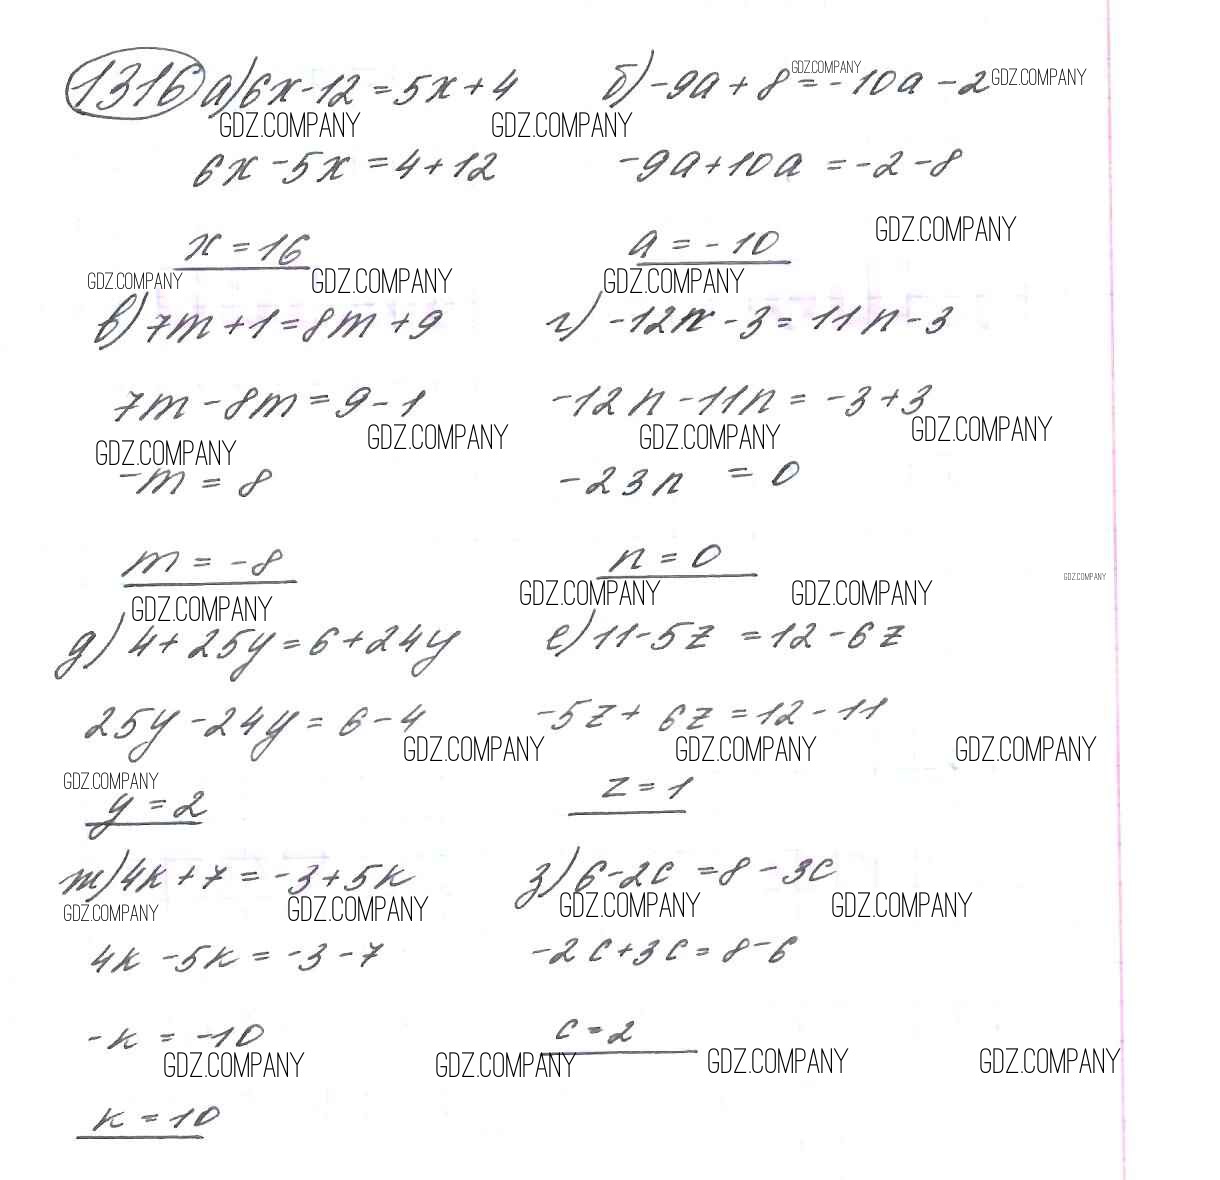 1316 а) 6x - 12 = 5x + 4
б) -9a + 8 = -10a - 2
GDZ.COMPANY GDZ.COMPANY
GDZ.COMPANY GDZ.COMPANY
6x - 5x = 4 + 12
-9a + 10a = -2 - 8
GDZ.COMPANY
x = 16
a = -10
GDZ.COMPANY GDZ.COMPANY GDZ.COMPANY
в) 7m + 1 = 8m + 9
г) -12n - 3 = 11n - 3
7m - 8m = 9 - 1
-12n - 11n = -3 + 3
GDZ.COMPANY GDZ.COMPANY GDZ.COMPANY GDZ.COMPANY
-m = 8
-23n = 0
m = -8
n = 0
GDZ.COMPANY
GDZ.COMPANY GDZ.COMPANY GDZ.COMPANY
д) 4 + 25y = 6 + 24y
е) 11 - 5z = 12 - 6z
25y - 24y = 6 - 4
-5z + 6z = 12 - 11
GDZ.COMPANY GDZ.COMPANY GDZ.COMPANY
GDZ.COMPANY
y = 2
z = 1
ж) 4k + 7 = -3 + 5k
з) 6 - 2c = 8 - 3c
GDZ.COMPANY GDZ.COMPANY GDZ.COMPANY GDZ.COMPANY
4k - 5k = -3 - 7
-2c + 3c = 8 - 6
-k = -10
c = 2
GDZ.COMPANY GDZ.COMPANY GDZ.COMPANY GDZ.COMPANY
k = 10